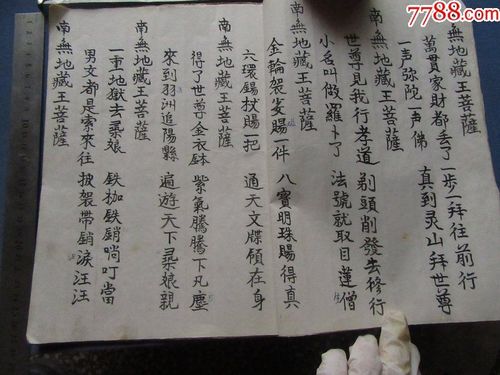 7788.com
南無地藏王菩薩
萬貫家財都丢了 一步一拜往前行
一声弥陀一声佛 真到灵山拜世尊
南無地藏王菩薩
世尊見我行孝道 剃頭削發去修行
小名叫做羅卜了 法號就取目蓮僧
南無地藏王菩薩
金輪袈裟賜一件 八寶明珠賜得真
六環錫杖賜一把 通天文牒頒在身
南無地藏王菩薩
得了世尊金衣鉢 紫氣騰騰下凡塵
來到羽洲追陽縣 遍遊天下尋娘親
南無地藏王菩薩
一重地獄去尋娘 鉄枷鉄鎖响叮當
男女都是索來往 披架帶銷淚汪汪